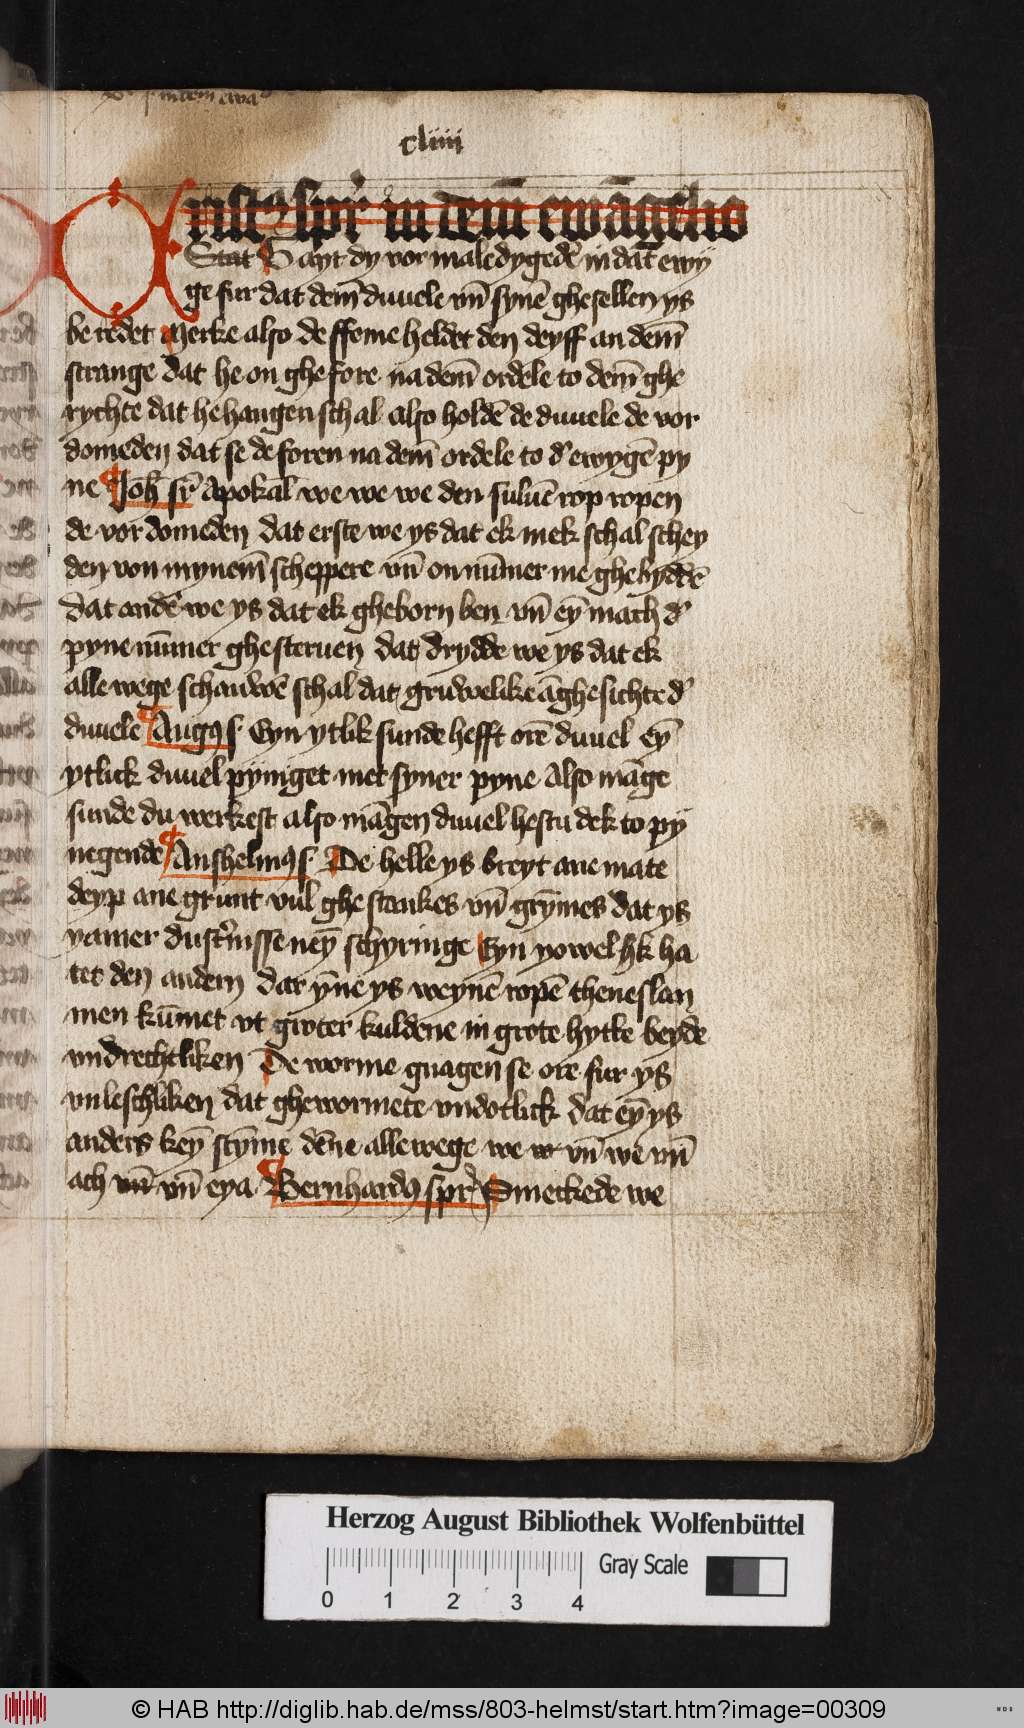 cliiii
Xristꝰ spr̄ in dem̄ ewāgelio
Gayt dy vormaledygedē in dat ewy
ge fur dat dem̄ duuele vn̄ synē ghesellen ys
beredet Merke also de ffome heldet den deyff an dem̄
strange dat he on ghefore na dem̄ ordele to dem̄ ghe
rychte dat he hangen schal also holdē de duuele de vor
domeden dat se de foren na dem̄ ordele to dʾ ewygē py
ne Joh̄ sr̄ Apokal we we we den suluē rop ropen
de vordomeden dat erste we ys dat ek mek schal schey
den von mynem̄ scheppere vn̄ on nūmer me ghebyddē
dat andē we ys dat ek gheborn ben vn̄ eȳ mach dʾ
pyne nūmer ghesteruen dat drydde we ys dat ek
allewege schauwē schal dat gruwelike āghesichte dʾ
duuele Augꝰ s Eyn ytlik sunde hefft orē duuel eȳ
ytlick duuel pyniget met syner pyne Also māge
sunde du werkest also māgen duuel hestu dek to py
negende Anshelmꝰ s De helle ys breyt ane mate
deyp ane grunt vul ghestankes vn̄ grȳmes dat ys
yamer dustʾnisse neȳ schyringe Eyn yowelk ha
tet den andern dar ȳne ys weynē ropē theneslan
men kūmet vt groter kuldene in grote hytte beyde
vndrechtliken De worme gnagen se ore fur ys
vnleschliken dat ghewormete vndotlick dat eȳ ys
anders keȳ stȳme dēne allewege we w vn̄ we vn̄
ach vn̄ vn̄ eya Bernhardꝰ spr̄ Smeckede we
Herzog August Bibliothek Wolfenbüttel
Gray Scale
0 1 2 3 4
© HAB http://diglib.hab.de/mss/803-helmst/start.htm?image=00309